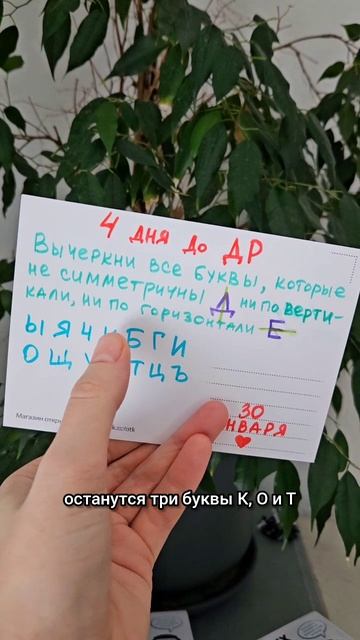 4 ДНЯ ДО ДР
Вычеркни все буквы, которые
не симметричны Д ни по верти-
кали, ни по горизонтали Е
Ы Я Ч Б Г И
О Щ Т Ц Ъ
30
НВАРЯ
Магазин откры
останутся три буквы К, О и Т